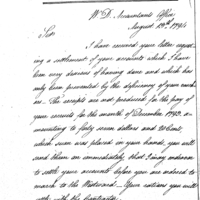 W.D. Accountants Office
August 19th 1794
Sir
I have received your letter request
ing a settlement of your accounts which I have
been very desirous of having done and which has
only been prevented by the deficiency of your vouch
ers. The receipts are not produced for the pay of
your recruits for the month of December 1793. a
mounting to forty seven dollars and 70 Cents,
which sum was placed in your hands, you will
send them on immediately, that I may endeavor
to settle your accounts before you are ordered to
march to the Westward.